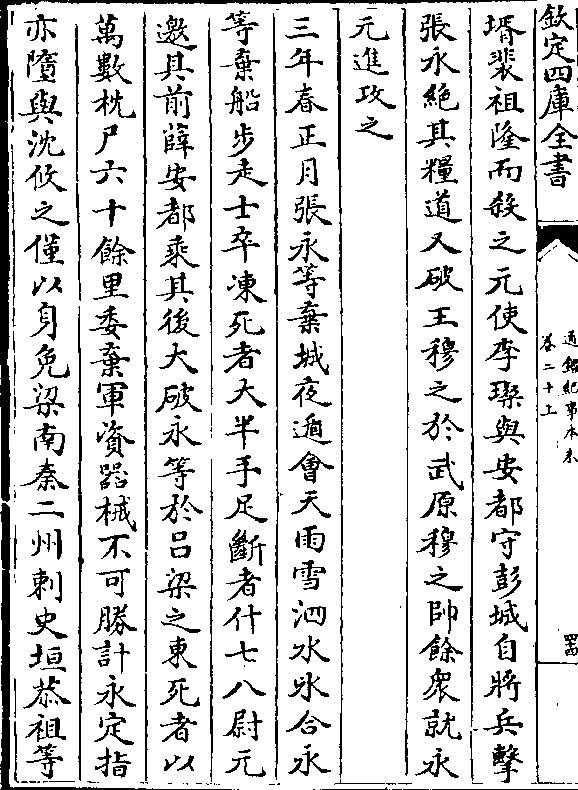 欽定四庫全書
通鑑紀事本末
卷二十上
罡
壻裴祖隆而殺之元使李璨與安都守彭城自將兵擊
張永絶其糧道又破王穆之於武原穆之帥餘衆就永
元進攻之
三年春正月張永等棄城夜遁會天雨雪泗水氷合永
等棄船步走士卒凍死者大半手足斷者什七八尉元
邀其前薛安都乘其後大破永等於吕梁之東死者以
萬數枕尸六十餘里委棄軍資器械不可勝計永足指
亦墮與沈攸之僅以身免梁南秦二州刺史垣恭祖等